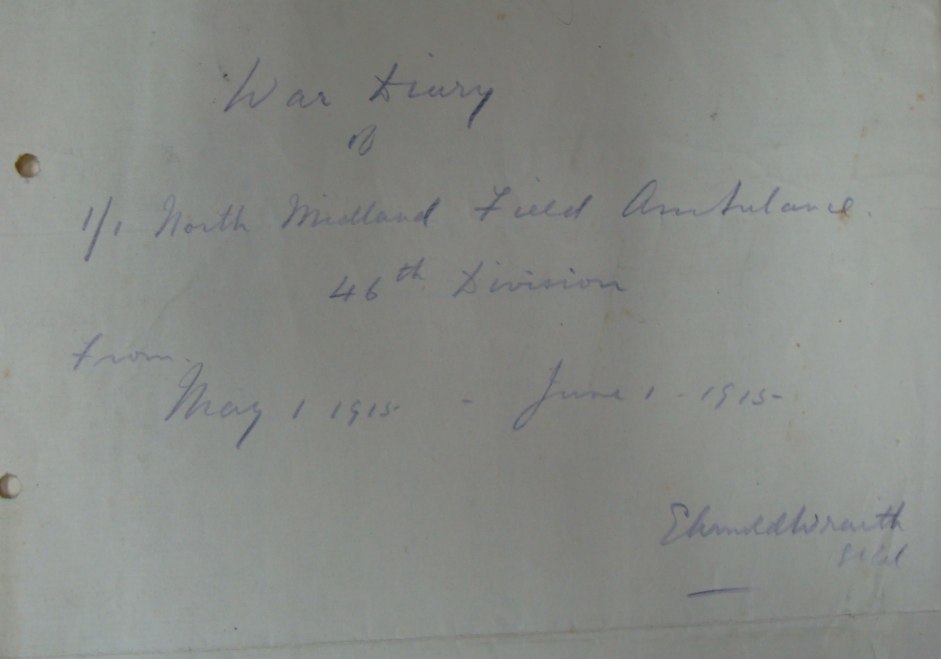 War Diary
of
1/1 North Midland Field Ambulance.
46th Division
From.
May 1 1915 - June 1 - 1915-